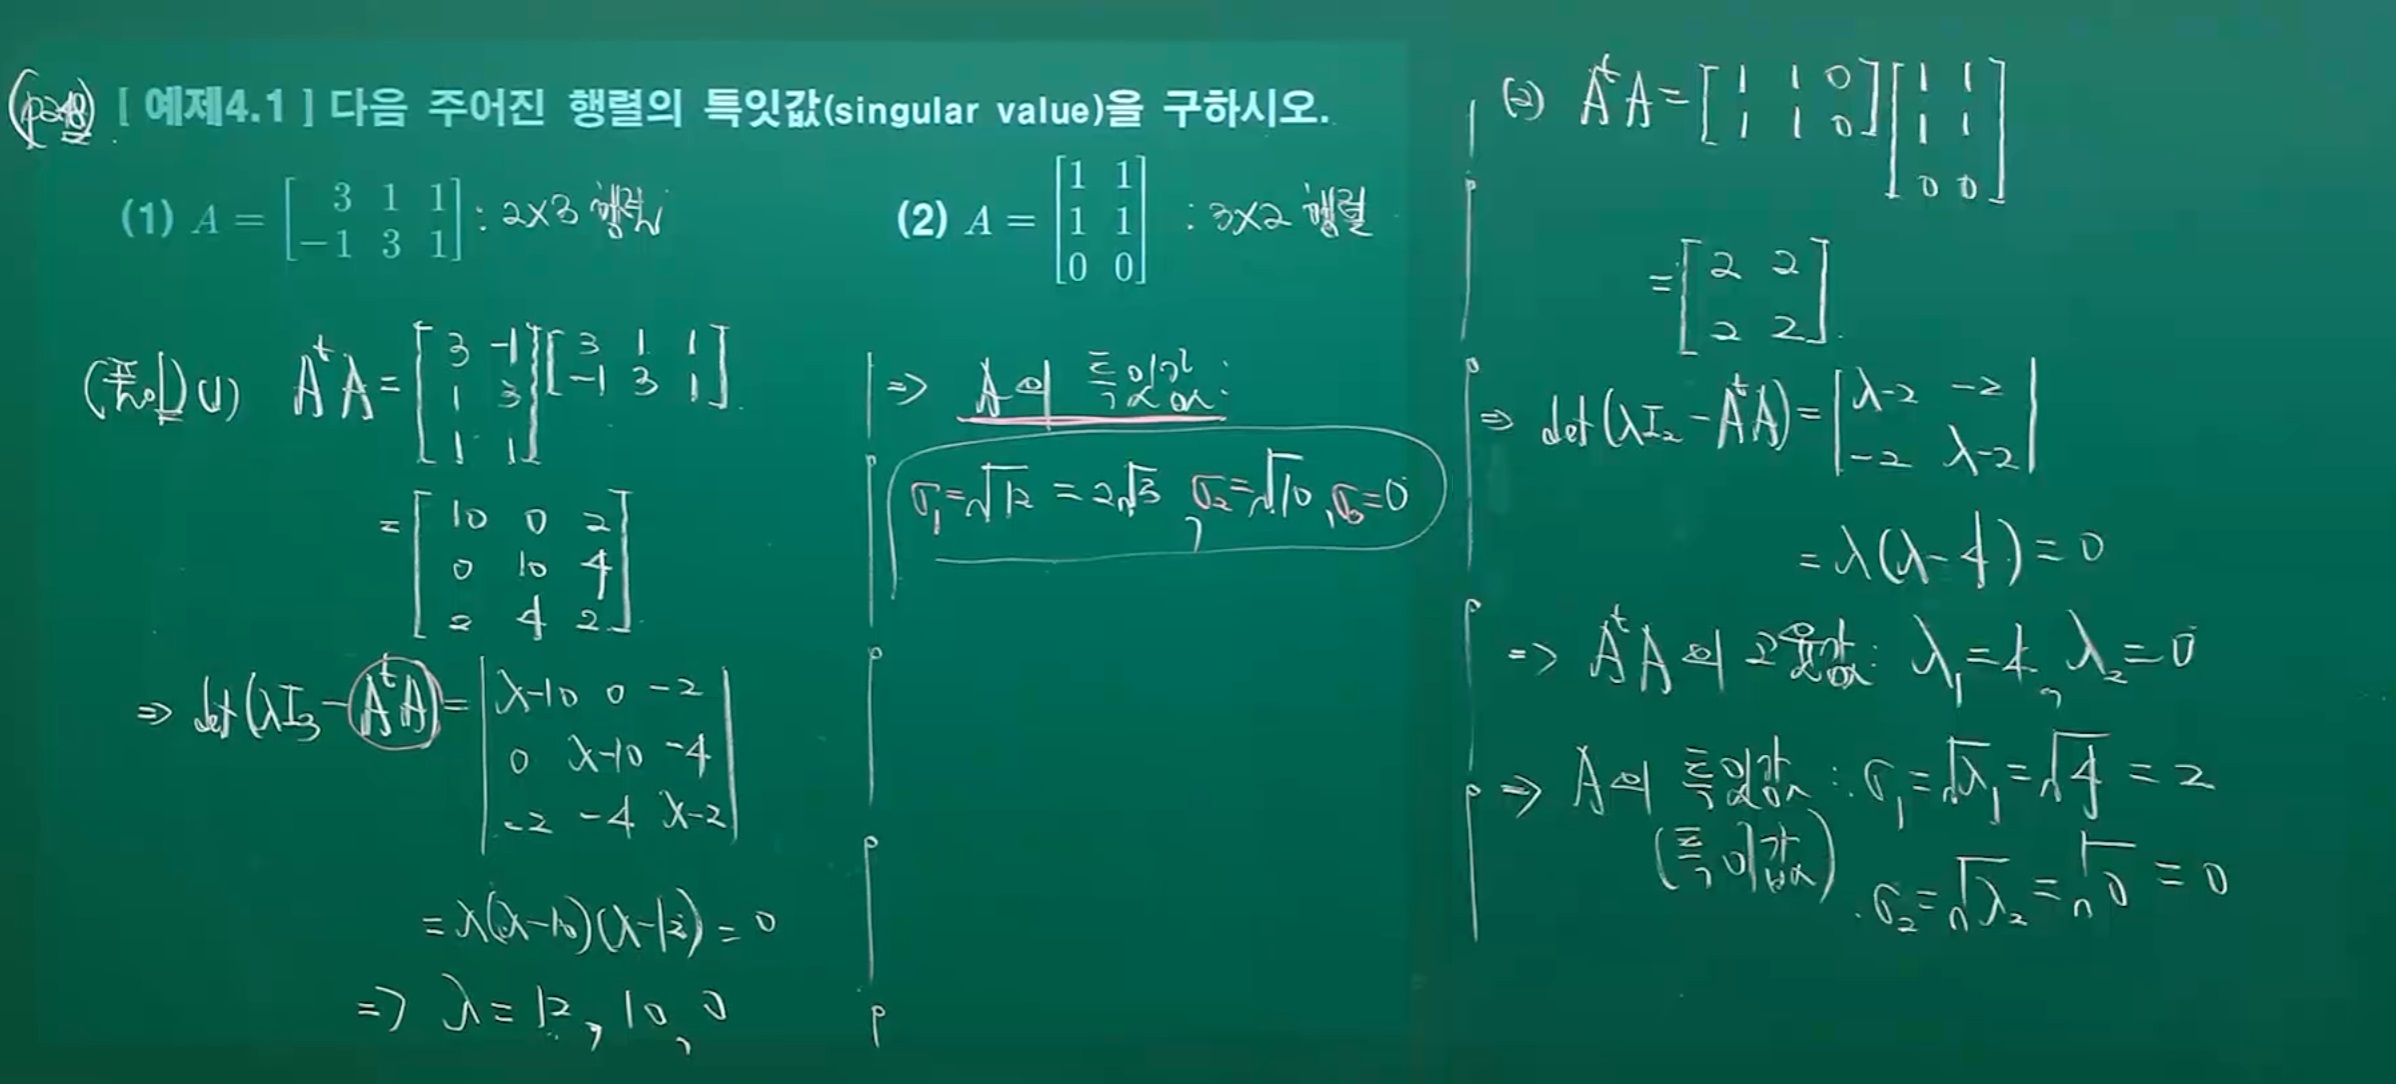 (p248) [ 예제4.1 ] 다음 주어진 행렬의 특잇값(singular value)을 구하시오.
(1) A = [3 1 1; -1 3 1] : 2×3 행렬
(2) A = [1 1; 1 1; 0 0] : 3×2 행렬
(풀이) (1) AᵗA = [3 -1; 1 3; 1 1][3 1 1; -1 3 1]
= [10 0 2; 0 10 4; 2 4 2]
⇒ det(λI₃ - AᵗA) = |λ-10 0 -2; 0 λ-10 -4; -2 -4 λ-2|
= λ(λ-10)(λ-12) = 0
⇒ λ = 12, 10, 0
⇒ A의 특잇값:
σ₁ = √12 = 2√3, σ₂ = √10, σ₃ = 0
(2) AᵗA = [1 1 0; 1 1 0][1 1; 1 1; 0 0]
= [2 2; 2 2]
⇒ det(λI₂ - AᵗA) = |λ-2 -2; -2 λ-2|
= λ(λ-4) = 0
⇒ AᵗA의 고윳값: λ₁ = 4, λ₂ = 0
⇒ A의 특잇값: σ₁ = √λ₁ = √4 = 2
(특이값) σ₂ = √λ₂ = √0 = 0